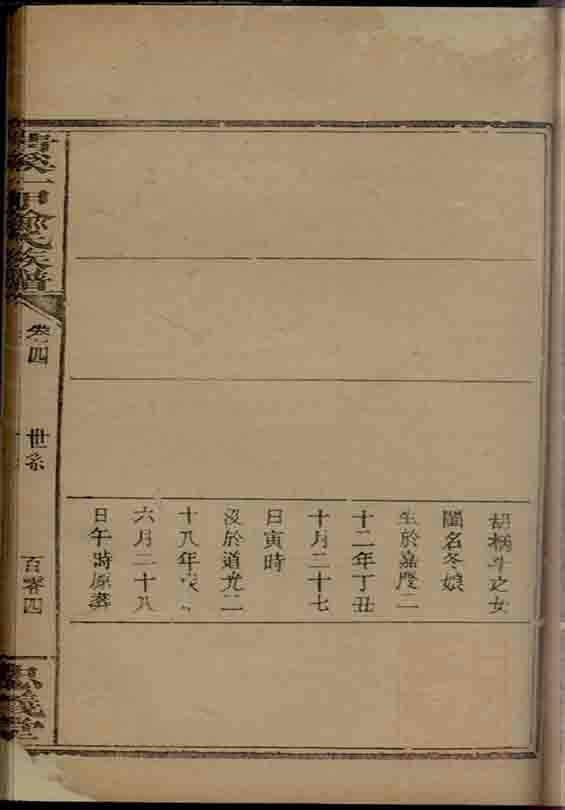 胡炳斗之女
閨名冬娘
生於嘉慶二
十二年丁丑
十月二十七
日寅時
没於道光二
十八年戊
六月二十八
日午時原葬
溪一甲俞氏族譜
卷四
世系
百零四
義堂